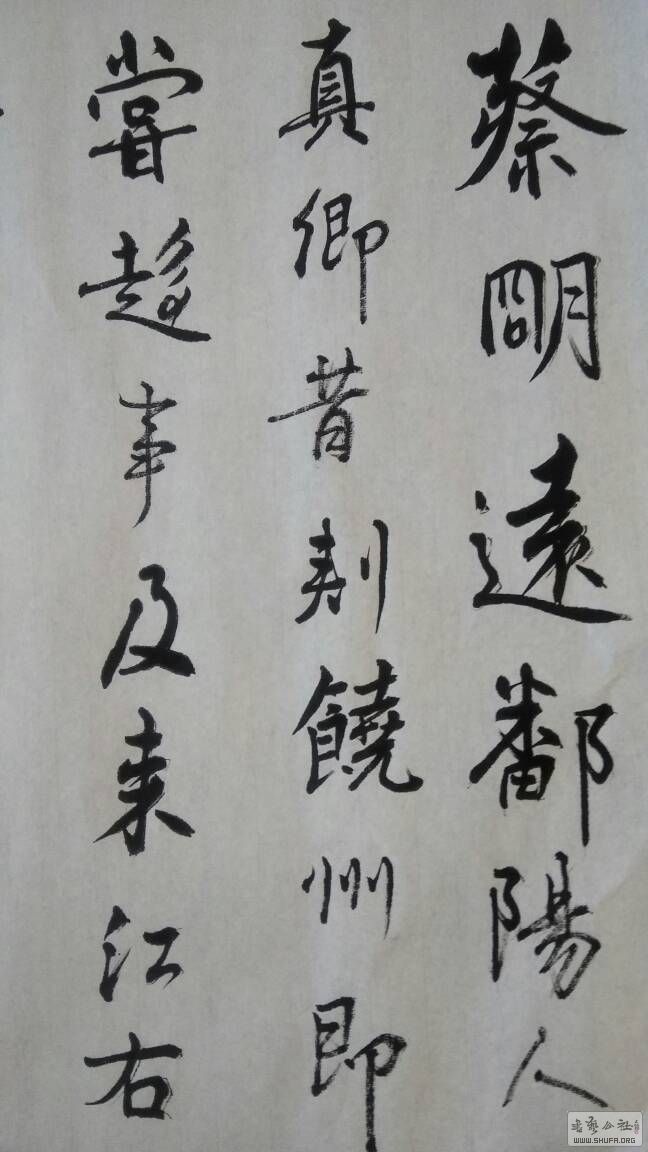 蔡明遠鄱陽人
真卿昔刺饒州即
嘗趍事及来江右
书艺公社
WWW.SHUFA.ORG